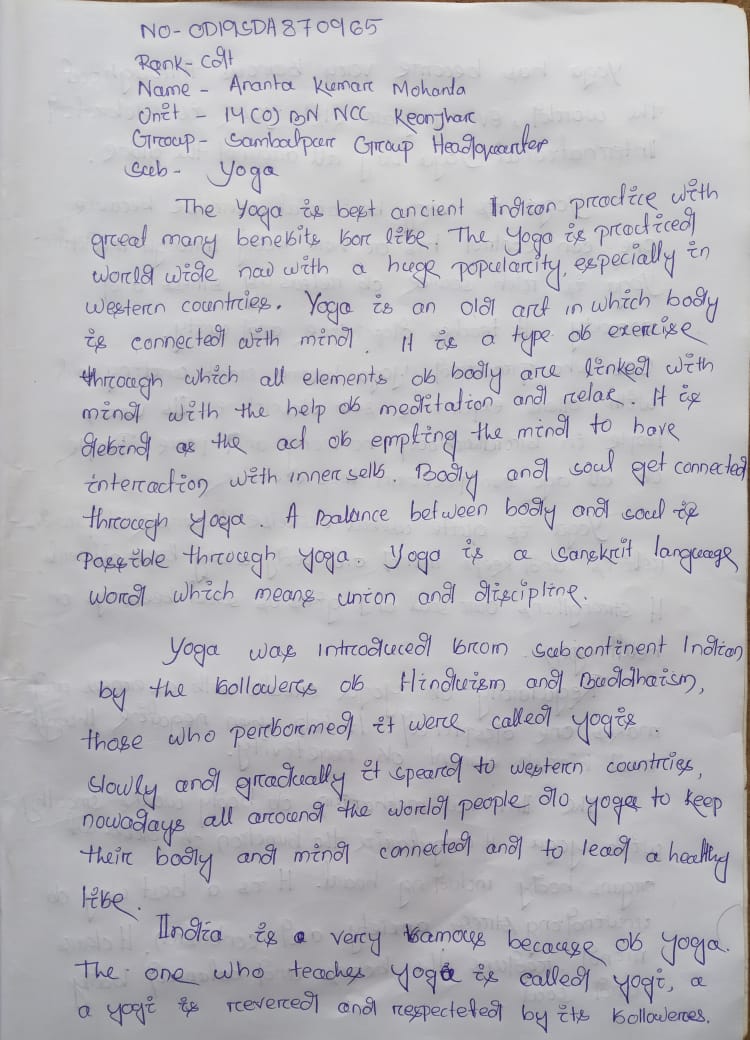 NO- OD19SDA870965
Rank- Cdt
Name - Ananta Kumar Mohanta
Unit - 14(O) BN NCC Keonjhar
Group - Sambalpur Group Headquarter
Sub - Yoga
The Yoga is best ancient Indian practice with
great many benefits for life. The Yoga is practiced
world wide now with a huge popularity, especially in
western countries. Yoga is an old art in which body
is connected with mind. It is a type of exercise
through which all elements of body are linked with
mind with the help of meditation and relax. It is
defind as the act of empting the mind to have
interaction with inner self. Body and soul get connected
through yoga. A Balance between body and soul is
Possible through yoga. Yoga is a Sanskrit language
word which means union and discipline.
Yoga was introduced from Subcontinent Indian
by the followers of Hinduism and Buddhaism,
those who performed it were called yogis.
Slowly and gradually it speard to western countries,
nowadays all around the world people do yoga to keep
their body and mind connected and to lead a healthy
life.
India is a very famous because of yoga.
The one who teaches yoga is called yogi, a
a yogi is revered and respecteted by its followeres.